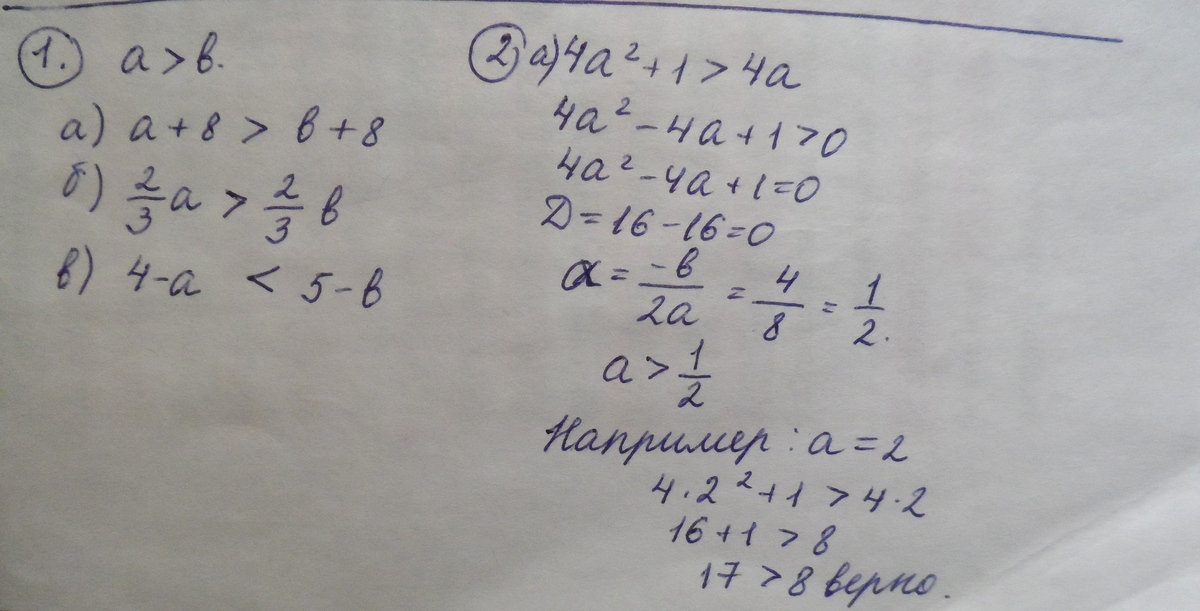 1. a > b.
а) a + 8 > b + 8
б) 2/3 a > 2/3 b
в) 4 - a < 5 - b
2. а) 4a² + 1 > 4a
4a² - 4a + 1 > 0
4a² - 4a + 1 = 0
D = 16 - 16 = 0
a = -b/2a = 4/8 = 1/2.
a > 1/2
Например: a = 2
4 · 2² + 1 > 4 · 2
16 + 1 > 8
17 > 8 верно.